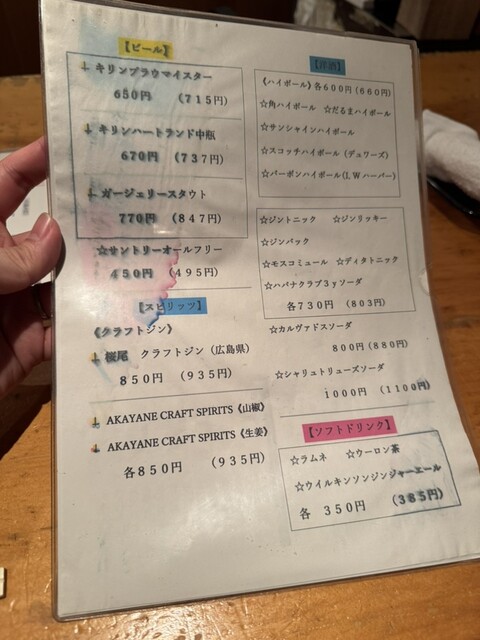 【ビール】
キリンブラウマイスター
650円 (715円)
キリンハートランド中瓶
670円 (737円)
ガージェリースタウト
770円 (847円)
☆サントリーオールフリー
450円 (495円)
【スピリッツ】
《クラフトジン》
桜尾 クラフトジン (広島県)
850円 (935円)
AKAYANE CRAFT SPIRITS《山椒》
AKAYANE CRAFT SPIRITS《生姜》
各850円 (935円)
【洋酒】
《ハイボール》各600円 (660円)
☆角ハイボール ☆だるまハイボール
☆サンシャインハイボール
☆スコッチハイボール (デュワーズ)
☆バーボンハイボール(I.Wハーパー)
☆ジントニック ☆ジンリッキー
☆ジンバック
☆モスコミュール ☆ディタトニック
☆ハバナクラブ3yソーダ
各730円 (803円)
☆カルヴァドスソーダ
800円 (880円)
☆シャリュトリューズソーダ
1000円 (1100円)
【ソフトドリンク】
☆ラムネ ☆ウーロン茶
☆ウイルキンソンジンジャーエール
各 350円 (385円)